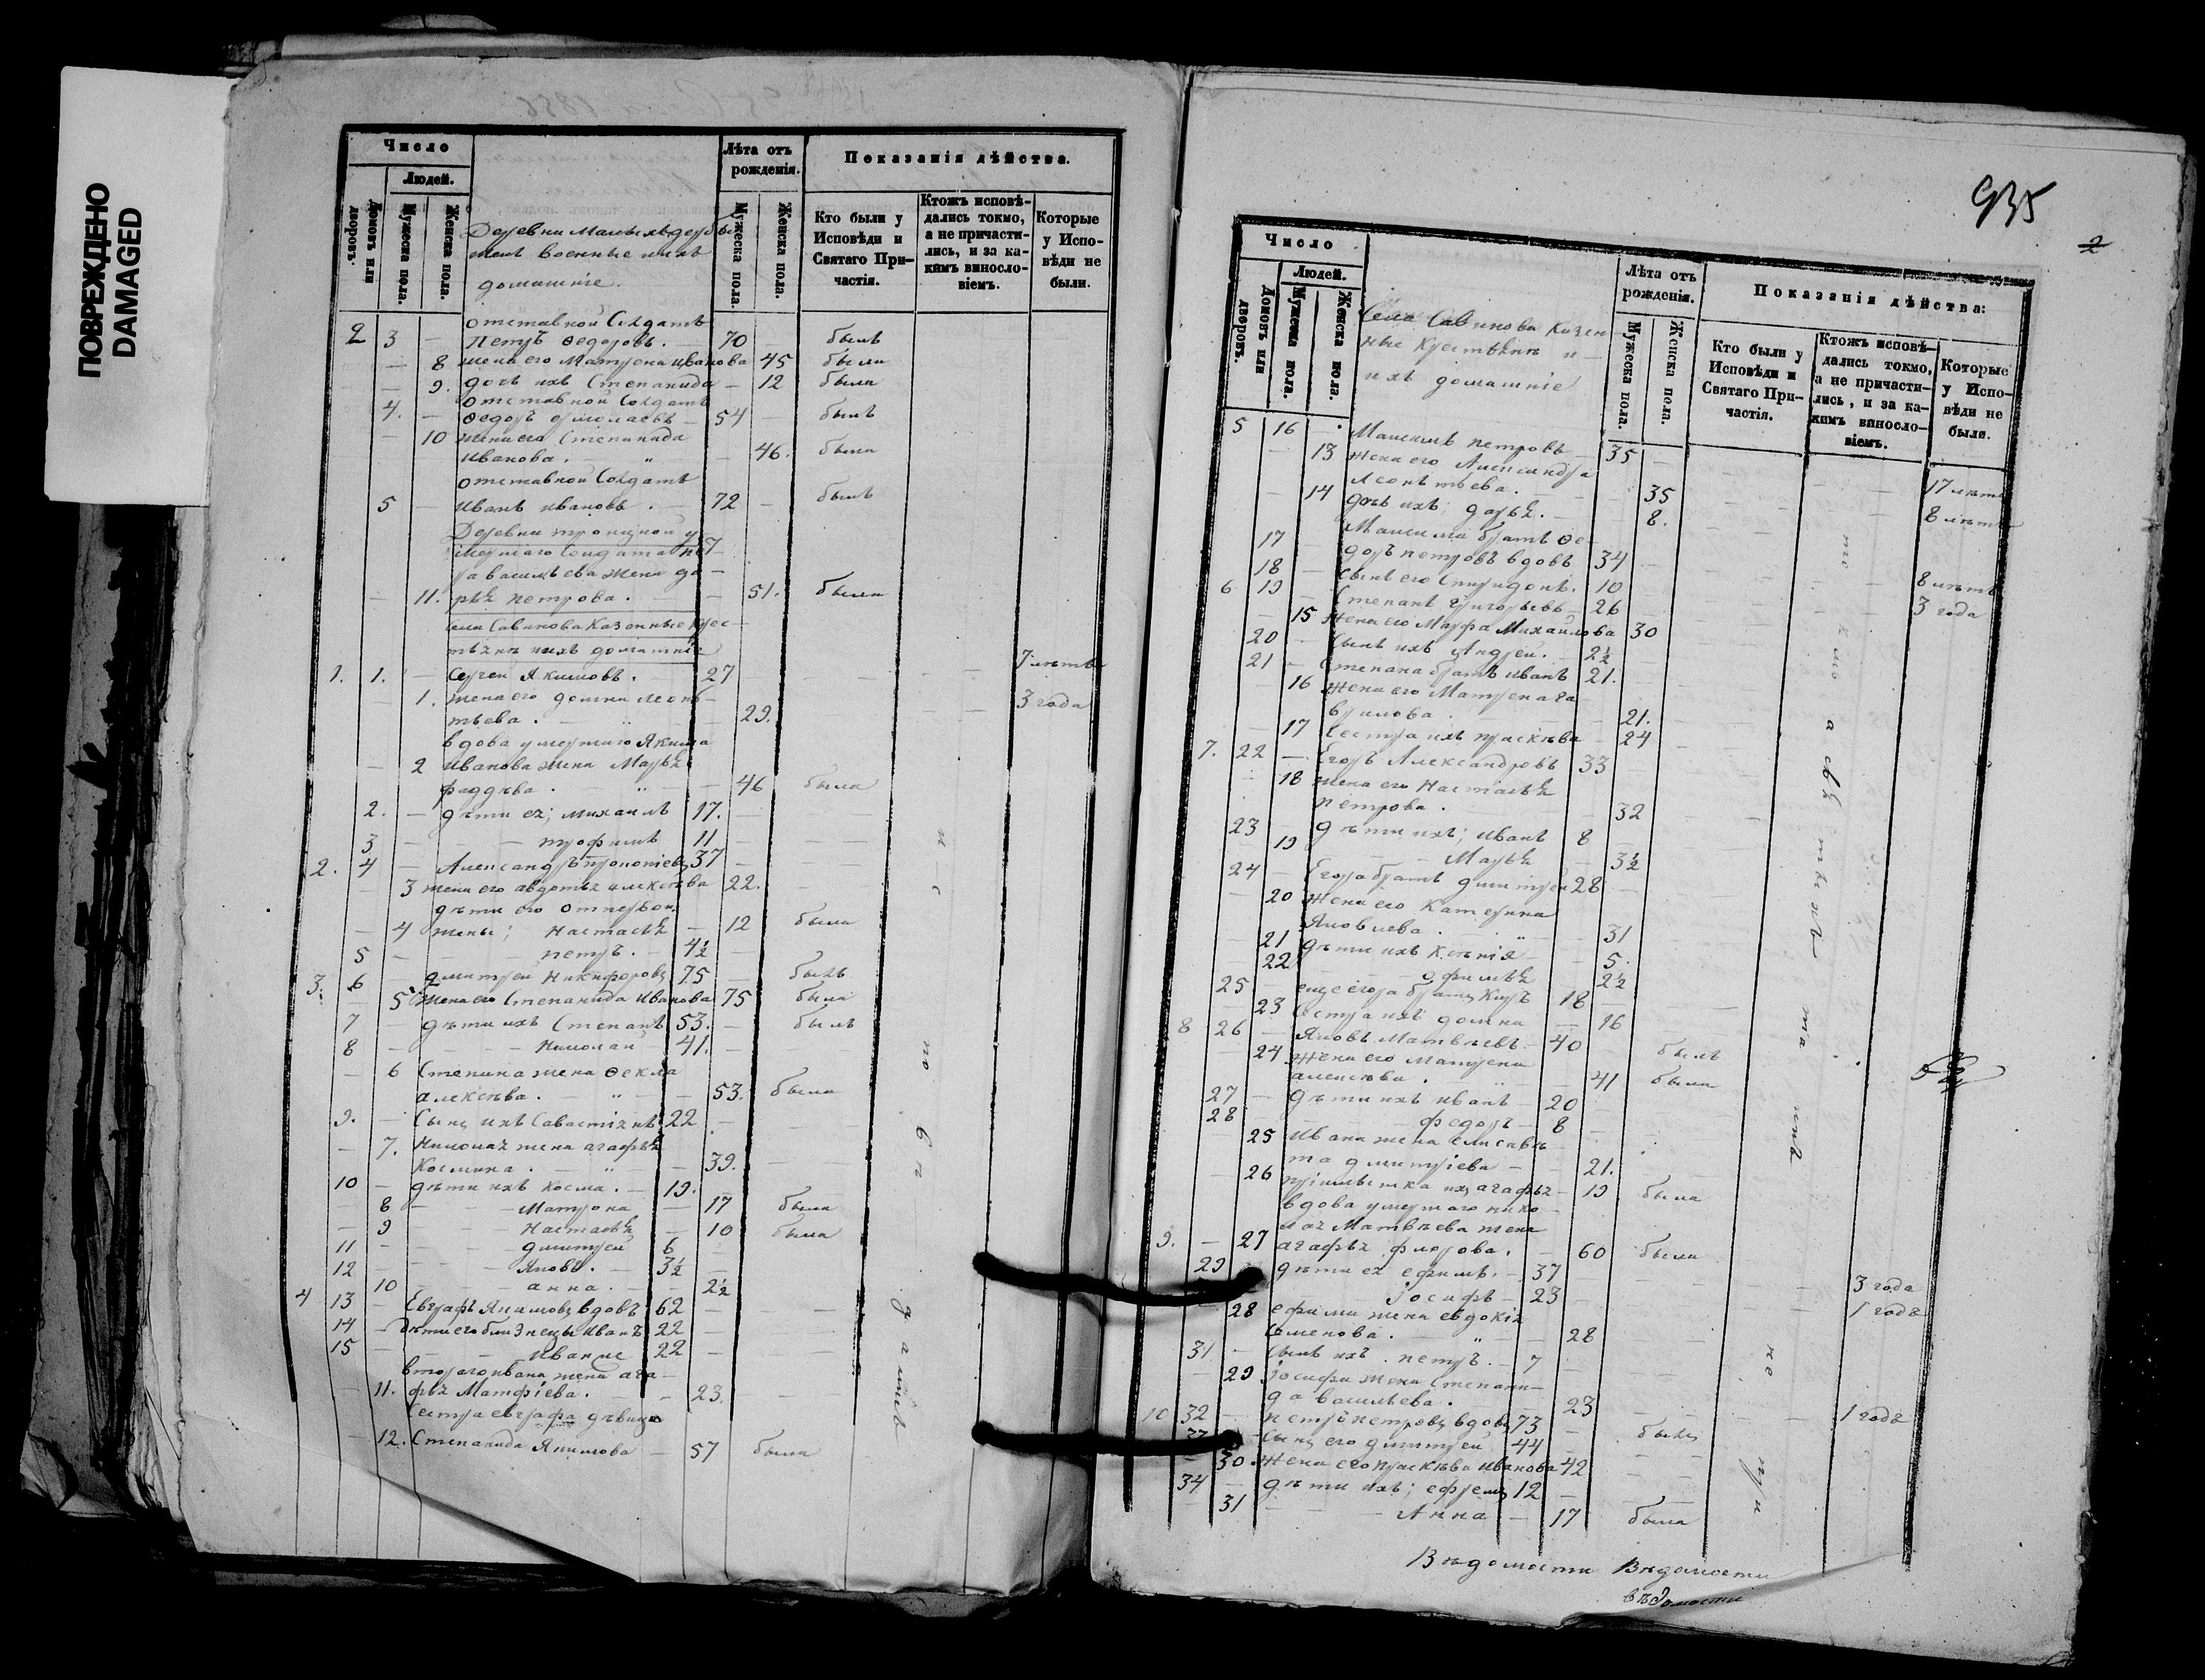 ПОВРЕЖДЕНО
DAMAGED
Число
Людей.
Домовъ или дворовъ.
Мужеска пола.
Женска пола.
военные ихъ
домашніе.
Лѣта отъ рожденія.
Мужеска пола.
Женска пола.
Показанія дѣйства.
Кто были у Исповѣди и Святаго При-частія.
Ктожъ исповѣ-дались токмо, а не причасти-лись, и за ка-кимъ виносло-віемъ.
Которые у Испо-вѣди не были.
отставной Солдатъ
2 3 — Петръ Ѳедоровъ. — 70 — былъ
— 8 жена его Матрена Иванова 45 была
— 9. дочь ихъ Степанида — 12 была
отставной Солдатъ
4. — Ѳедоръ Ермолаевъ — 54 — былъ
— 10 жена его Степанида
Иванова. — „ — 46. была
отставной Солдатъ
5 — Иванъ Ивановъ. — 72 — былъ
Деревни Троицкой у
мершаго Солдата Пет
ра Васильева жена да—
— 11. рьѧ Петрова. — 51. была
Села Савинова Казенные Крес—
тьѧнѣ и ихъ домашніе
1. 1. — Сергей Якимовъ. — 27 — 7 лѣтъ
— 1. жена его Домна Леонъ—
тьева. — „ — 29. — 3 года
вдова умершаго Якима
— 2 Иванова жена Марьѧ
Фаддѣева. — „ — 46 была
2. — дѣти еѧ; Михаилъ 17. —
3 — — — Трофимъ 11 —
2. 4 — Александръ Прокопіевъ 37 —
— 3 жена его Авдотьѧ Алексѣева 22. —
дѣти его от первой
— 4 жены; Настасьѧ — 12 была
5 — — — Петръ. — 4½ —
3. 6 — Дмитрей Никифоровъ 75 — былъ
— 5 Жена его Степанида Иванова 75 была
7 — дѣти ихъ Степанъ 53. — былъ
8 — — — Николай 41. —
— 6 Степана жена Ѳекла
Алексѣева. — „ — 53. была
9. — Сынъ ихъ Савастіѧнъ 22 —
— 7. Николаѧ жена Агафьѧ
Космина. — „ — 39. —
10 — дѣти ихъ Косма. — 19. —
— 8 — — Матрона — 17 была
— 9 — — Настасьѧ — 10 была
11 — — — Дмитрей 6 —
12 — — — Яковъ. — 3½ —
10 — — Анна. — 2½
4 13 — Евграфъ Якимовъ вдовъ 62 —
14 — дѣти его близнецы Иванъ 22 —
15 — — — Иванже 22 —
втораго Ивана жена Ага—
— 11. фьѧ Матфіева. — 23. —
Сестра Евграфа дѣвица
— 12. Степанида Якимова — 57 была
935
2
Число
Людей.
Домовъ или дворовъ.
Мужеска пола.
Женска пола.
Села Савинова Казен
ные Крестьѧнѣ и—
ихъ домашніе
Лѣта отъ рожденія.
Мужеска пола.
Женска пола.
Показанія дѣйства:
Кто были у Исповѣди и Святаго При-частія.
Ктожъ исповѣ-дались токмо, а не причасти-лись, и за ка-кимъ виносло-віемъ.
Которые у Испо-вѣди не были.
5 16 — Максимъ Петровъ — 35 —
— 13 жена его Александра
Леонтьева. — 35 — 17 лѣтъ
— 14 дочь ихъ; Дарьѧ. — 8. — 8 лѣтъ
Максима братъ Ѳе—
17 — доръ Петровъ вдовъ 34 —
18 — Сынъ его Спиридонъ. 10 — 8 лѣтъ
6 19 — Степанъ Григорьевъ — 26 — 3 года
15 жена его Марфа Михайлова 30
20 — Сынъ ихъ Андрей. 2½
21 — Степана братъ Иванъ 21.
16 жена его Матрена Га
врилова. — 21.
— 17 Сестра ихъ Праскѣва 24
7. 22 — Егоръ Александровъ 33
— 18 жена его Настасьѧ
Петрова. — 32
23 — дѣти ихъ; Иванъ 8
19 — Марьѧ — 3½
24 — Егора братъ Дмитрей 28 —
20 жена его Катерина
Яковлева. — „ — 31
— 21 дѣти ихъ Ксѣніѧ — 5.
22 — Офимьѧ 2½
25 — еще Егора братъ Киръ 18 —
23 Сестра ихъ Домна — 16
8 26 — Яковъ Матвѣевъ 40 — былъ
— 24 жена его Матрена
Алексѣева. — 41 была
27 — дѣти ихъ Иванъ — 20 —
28 — — Ѳедоръ — 8 —
25 Ивана жена Елисаве
та Дмитріева — 21.
— 26 Агафьѧ — 19 была
вдова умершаго Нико
лаѧ Матвѣева жена
9. — 27 Агафьѧ Флорова. — 60 была
29 дѣти еѧ Ефимъ. — 37 — 3 года
Іосифъ — 23 — 1 годъ
28 Ефима жена Евдокіѧ
Семенова. — „ — 28
31 — Сынъ ихъ Петръ. — 7 —
— 29 Іосифа жена Степани—
да Васильева. — 23 — 1 годъ
10 32 — Петръ Петровъ вдовъ 73 — былъ
33 — Сынъ его Дмитрей 44 —
— 30. Жена его Праскѣва Иванова 42
34 — дѣти ихъ; Ефремъ 12 —
31 — — Анна — 17 была
Вѣдомости Вѣдомости
вѣдомости